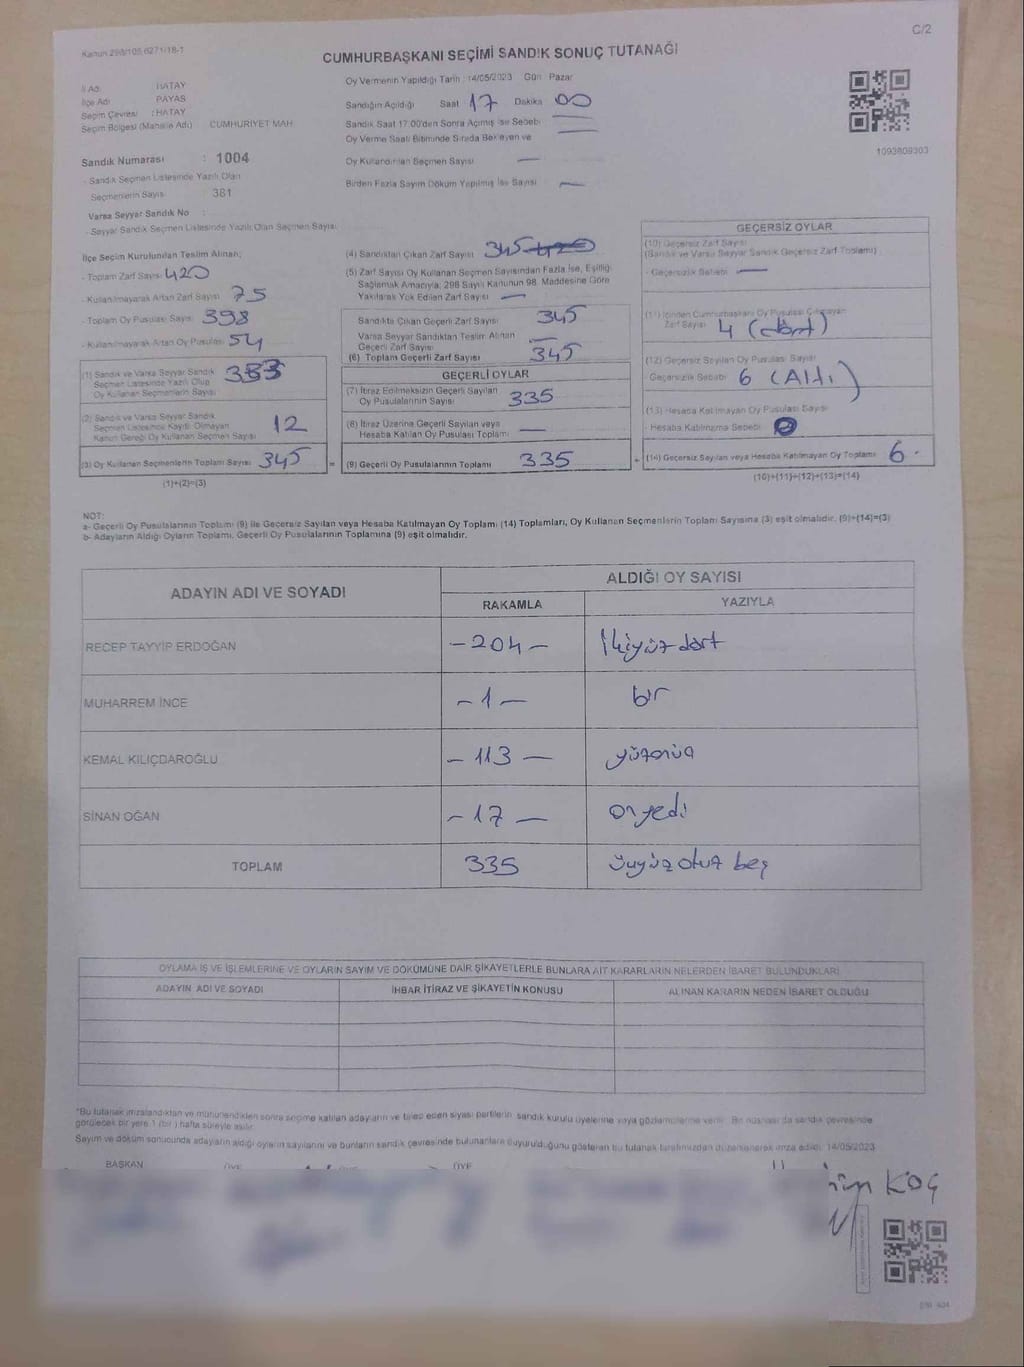 Kanun 298/105 6271/18-1
C/2
CUMHURBAŞKANI SEÇİMİ SANDIK SONUÇ TUTANAĞI
İl Adı HATAY
İlçe Adı PAYAS
Seçim Çevresi : HATAY
Seçim Bölgesi (Mahalle Adı) CUMHURİYET MAH
Sandık Numarası : 1004
- Sandık Seçmen Listesinde Yazılı Olan
Seçmenlerin Sayısı 381
Varsa Seyyar Sandık No :
- Seyyar Sandık Seçmen Listesinde Yazılı Olan Seçmen Sayısı
Oy Vermenin Yapıldığı Tarih : 14/05/2023 Gün : Pazar
Sandığın Açıldığı Saat 17 Dakika 00
Sandık Saat 17:00'den Sonra Açılmış ise Sebebi
Oy Verme Saati Bitiminde Sırada Bekleyen ve
Oy Kullandırılan Seçmen Sayısı —
Birden Fazla Sayım Döküm Yapılmış İse Sayısı —
1093809303
İlçe Seçim Kurulundan Teslim Alınan;
- Toplam Zarf Sayısı 420
- Kullanılmayarak Artan Zarf Sayısı 75
- Toplam Oy Pusulası Sayısı 398
- Kullanılmayarak Artan Oy Pusulası 54
(1) Sandık ve Varsa Seyyar Sandık
Seçmen Listesinde Yazılı Olup
Oy Kullanan Seçmenlerin Sayısı 333
(2) Sandık ve Varsa Seyyar Sandık
Seçmen Listesinde Kayıtlı Olmayan
Kanun Gereği Oy Kullanan Seçmen Sayısı 12
(3) Oy Kullanan Seçmenlerin Toplam Sayısı 345
(1)+(2)=(3)
(4) Sandıktan Çıkan Zarf Sayısı 345 420
(5) Zarf Sayısı Oy Kullanan Seçmen Sayısından Fazla İse, Eşitliği
Sağlamak Amacıyla, 298 Sayılı Kanunun 98. Maddesine Göre
Yakılarak Yok Edilen Zarf Sayısı —
Sandıkta Çıkan Geçerli Zarf Sayısı 345
Varsa Seyyar Sandıktan Teslim Alınan
Geçerli Zarf Sayısı —
(6) Toplam Geçerli Zarf Sayısı 345
GEÇERLİ OYLAR
(7) İtiraz Edilmeksizin Geçerli Sayılan
Oy Pusulalarının Sayısı 335
(8) İtiraz Üzerine Geçerli Sayılan veya
Hesaba Katılan Oy Pusulası Toplamı —
= (9) Geçerli Oy Pusulalarının Toplamı 335
GEÇERSİZ OYLAR
(10) Geçersiz Zarf Sayısı
(Sandık ve Varsa Seyyar Sandık Geçersiz Zarf Toplamı)
- Geçersizlik Sebebi —
(11) İçinden Cumhurbaşkanı Oy Pusulası Çıkmayan
Zarf Sayısı 4 (dört)
(12) Geçersiz Sayılan Oy Pusulası Sayısı
- Geçersizlik Sebebi 6 (Altı)
(13) Hesaba Katılmayan Oy Pusulası Sayısı
- Hesaba Katılmama Sebebi
+ (14) Geçersiz Sayılan veya Hesaba Katılmayan Oy Toplamı 6
(10)+(11)+(12)+(13)=(14)
NOT:
a- Geçerli Oy Pusulalarının Toplamı (9) ile Geçersiz Sayılan veya Hesaba Katılmayan Oy Toplamı (14) Toplamları, Oy Kullanan Seçmenlerin Toplam Sayısına (3) eşit olmalıdır. (9)+(14)=(3)
b- Adayların Aldığı Oyların Toplamı, Geçerli Oy Pusulalarının Toplamına (9) eşit olmalıdır.
ADAYIN ADI VE SOYADI ALDIĞI OY SAYISI
RAKAMLA YAZIYLA
RECEP TAYYİP ERDOĞAN -204- İkiyüz dört
MUHARREM İNCE -1- bir
KEMAL KILIÇDAROĞLU -113- yüzonüç
SİNAN OĞAN -17- onyedi
TOPLAM 335 üçyüz otuz beş
OYLAMA İŞ VE İŞLEMLERİNE VE OYLARIN SAYIM VE DÖKÜMÜNE DAİR ŞİKAYETLERLE BUNLARA AİT KARARLARIN NELERDEN İBARET BULUNDUKLARI
ADAYIN ADI VE SOYADI İHBAR İTİRAZ VE ŞİKAYETİN KONUSU ALINAN KARARIN NEDEN İBARET OLDUĞU
*Bu tutanak imzalandıktan ve mühürlendikten sonra seçime katılan adayların ve birleşik siyasi partilerin sandık kurulu üyelerine veya gözlemcilerine verilir. Bir nüshası da sandık çevresinde
görülecek bir yere 1 (bir) hafta süreyle asılır.
Sayım ve döküm sonucunda adayların aldığı oyların sayılarını ve bunların sandık çevresinde bulunanlara duyurulduğunu gösteren bu tutanak tarafımızdan düzenlenerek imza edildi. 14/05/2023
BAŞKAN ÜYE ÜYE
KOÇ